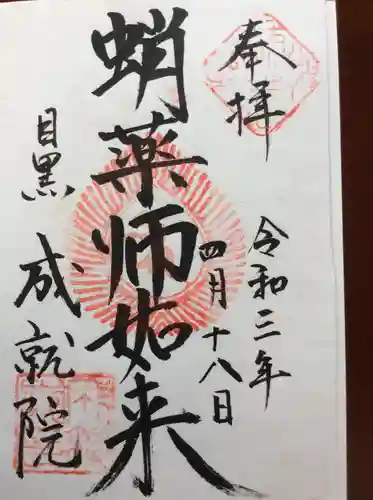 奉拝
令和三年
四月十八日
蛸薬師如来
目黒 成就院